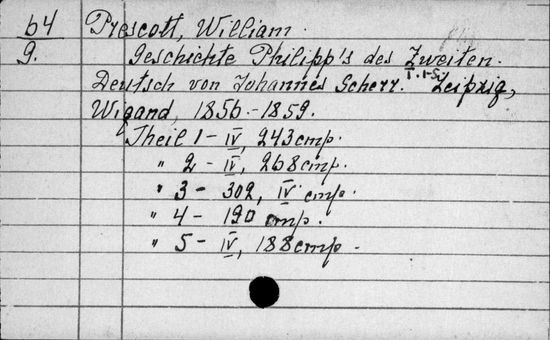 64
9.
Prescott, William.
Geschichte Philipp's des Zweiten.
T. 1-5.
Deutsch von Johannes Scherr. Leipzig,
Wigand, 1856.-1859.
Theil 1 - IV, 243 стр.
" 2 - IV, 268 стр.
" 3 - 302, IV стр.
" 4 - 190 стр.
" 5 - IV, 188 стр.